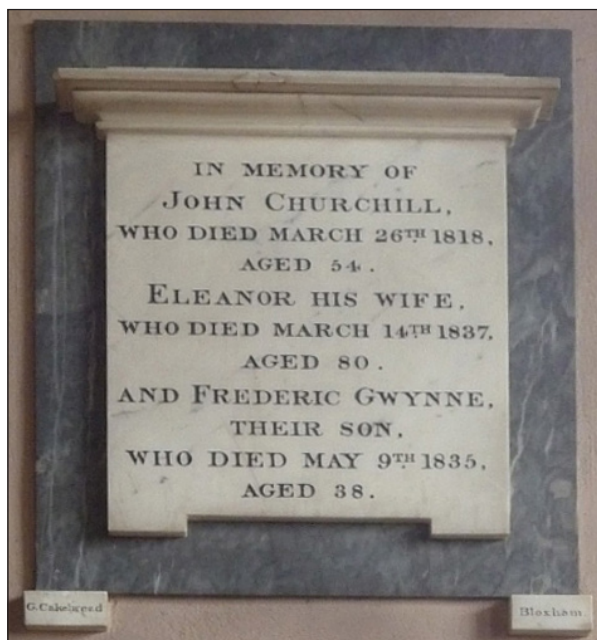 IN MEMORY OF
JOHN CHURCHILL,
WHO DIED MARCH 26TH 1818,
AGED 54.
ELEANOR HIS WIFE,
WHO DIED MARCH 14TH 1837,
AGED 80.
AND FREDERIC GWYNNE,
THEIR SON,
WHO DIED MAY 9TH 1835,
AGED 38.
G. Cakebread
Bloxham.